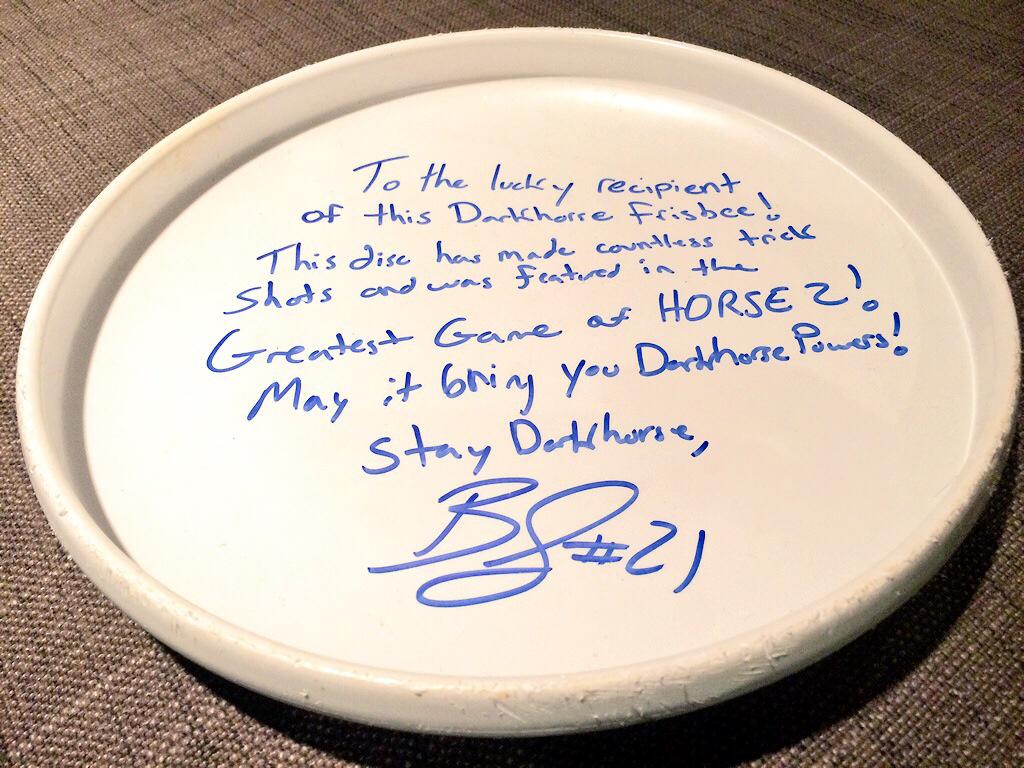 To the lucky recipient
of this Darkhorse Frisbee!
This disc has made countless trick
shots and was featured in the
Greatest Game of HORSE 2!
May it bring you Darkhorse Powers!
Stay Darkhorse,
#21